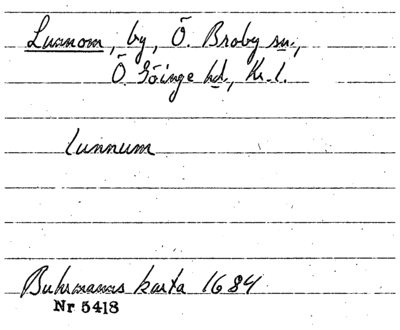 Lunnom, by, Ö. Broby sn.,
Ö. Göinge hd., Kr. l.
lunnum
Buhrmanns karta 1684
Nr 5418